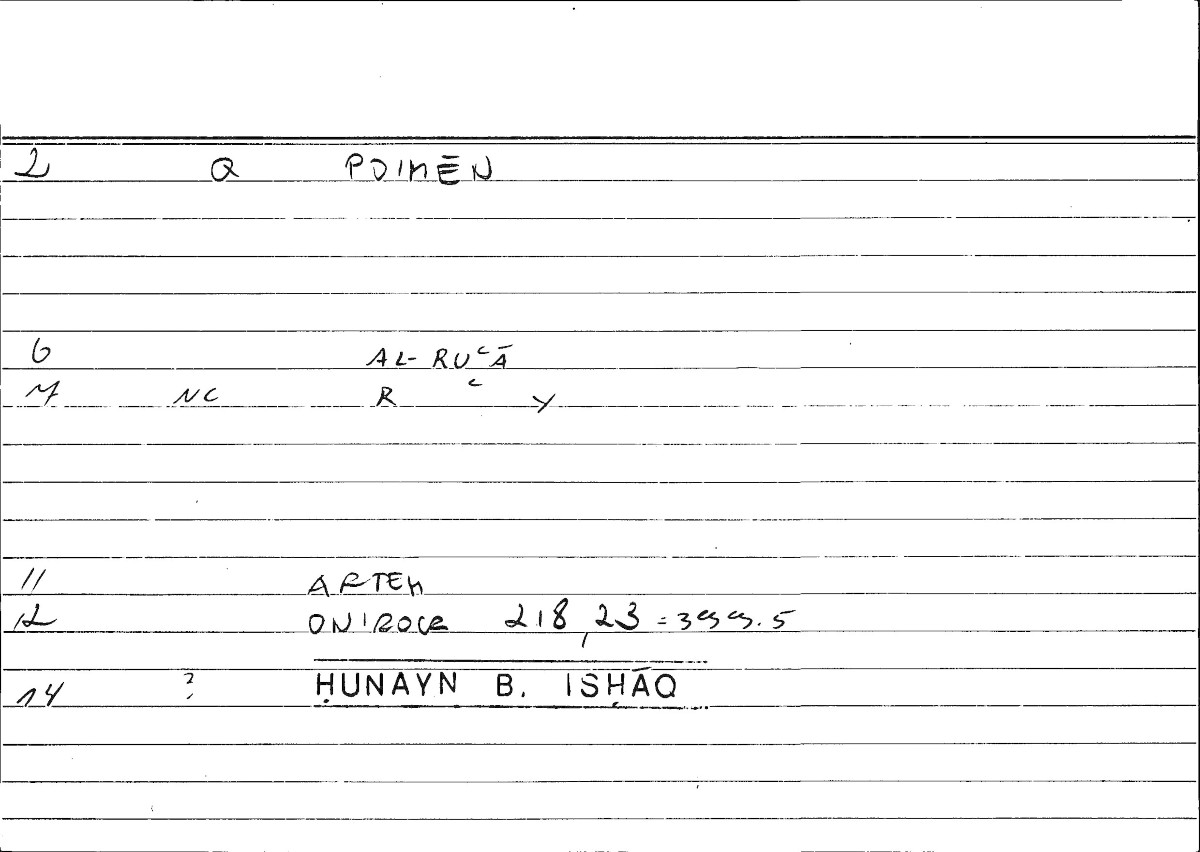 2 Q POIMĒN
6 AL-RUʿĀ
7 NC R ʿ Y
11 ARTEM
12 ONIROCR 218,23 = 399.5
14 ? ḤUNAYN B. ISḤĀQ